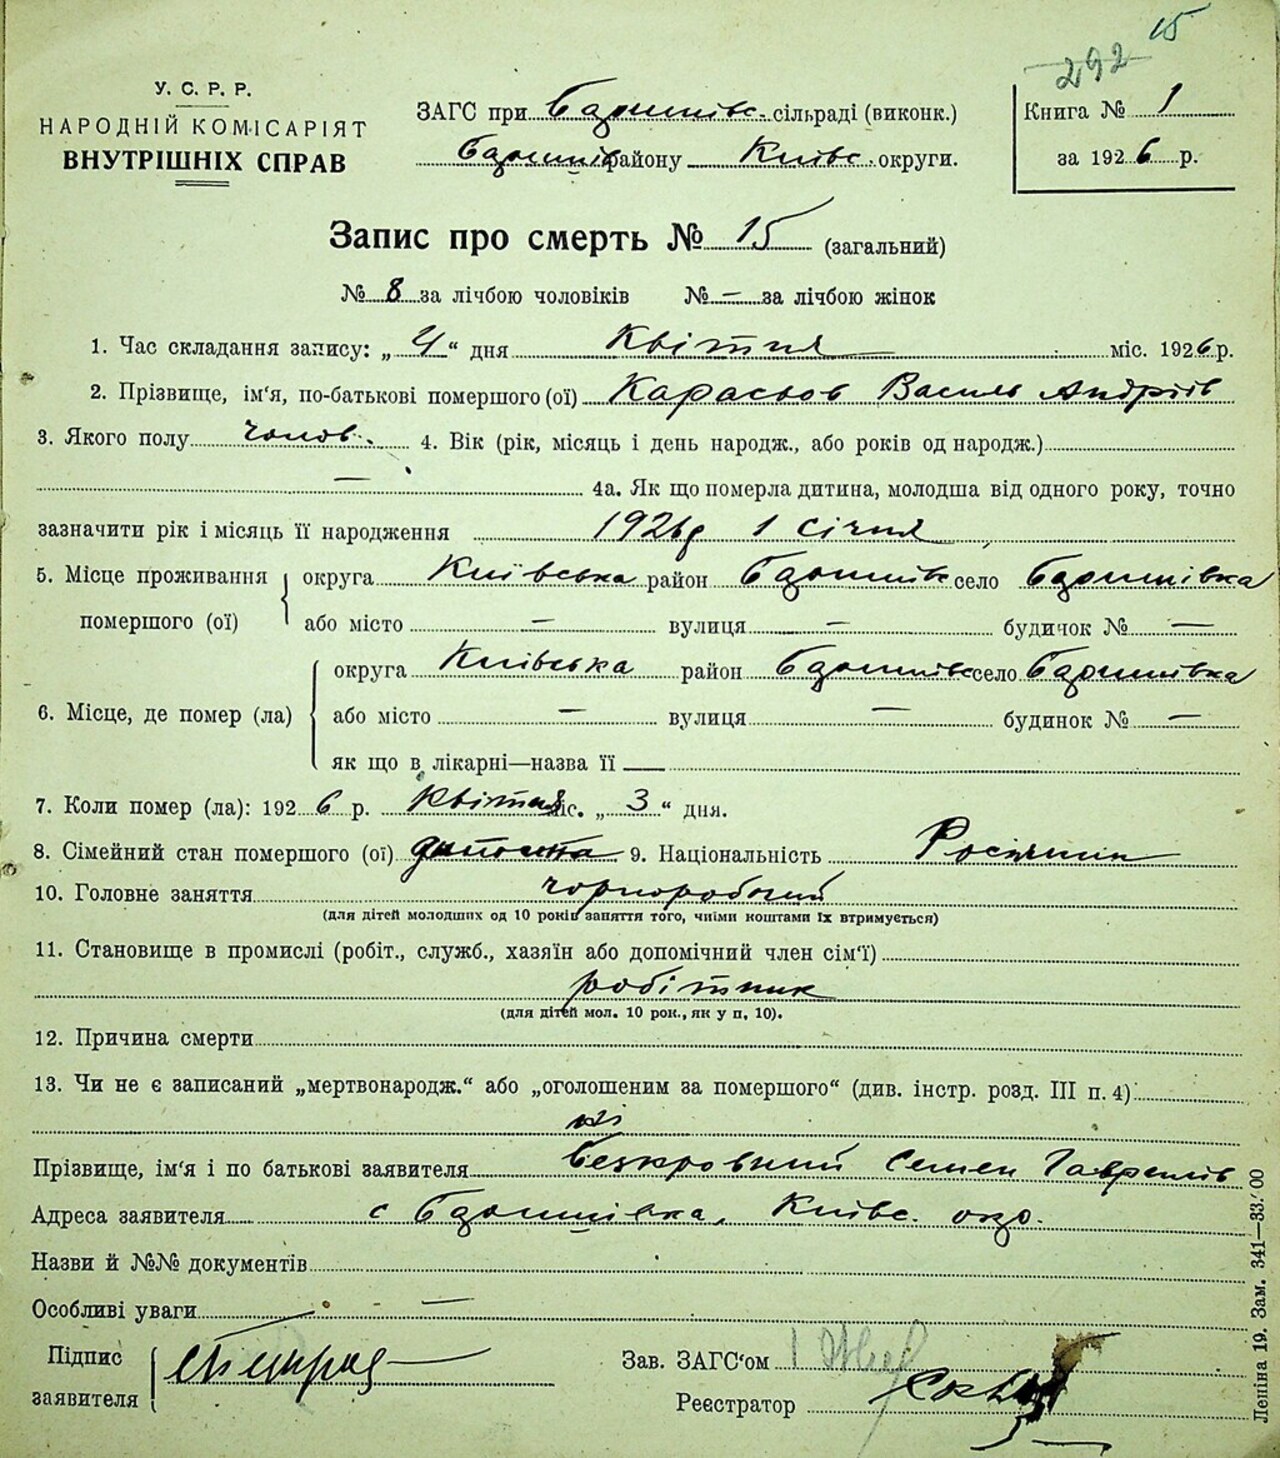 292 15
У. С. Р. Р.
НАРОДНІЙ КОМІСАРІЯТ
ВНУТРІШНІХ СПРАВ
ЗАГС при Бдошнівс. сільраді (виконк.)
району Київс. округи.
Книга № 1
за 1926 р.
Запис про смерть № 15 (загальний)
№ 8 за лічбою чоловіків № — за лічбою жінок
1. Час складання запису: „ 4 “ дня Квітня міс. 1926 р.
2. Прізвище, ім'я, по-батькові помершого (ої) Карасьов Василь Андріїв
3. Якого полу чолов. 4. Вік (рік, місяць і день народж., або років од народж.)
— 4а. Як що померла дитина, молодша від одного року, точно
зазначити рік і місяць її народження 1926 р 1 Січня
5. Місце проживання округа Київська район село
помершого (ої) або місто — вулиця — будичок № —
округа Київська район село
6. Місце, де помер (ла) або місто — вулиця — будинок № —
як що в лікарні—назва її —
7. Коли помер (ла): 1926 р. Квітня міс. „ 3 “ дня.
8. Сімейний стан помершого (ої) дитина 9. Національність Росіянин
10. Головне заняття чорноробочий
(для дітей молодших од 10 років заняття того, чиїми коштами їх втримується)
11. Становище в промислі (робіт., служб., хазяїн або допомічний член сім'ї)
робітник
(для дітей мол. 10 рок., як у п, 10).
12. Причина смерти
13. Чи не є записаний „мертвонародж.“ або „оголошеним за помершого“ (див. інстр. розд. III п. 4)
ні
Прізвище, ім'я і по батькові заявителя Безкровний Семен Гаврилів
Адреса заявителя с Київс. окр.
Назви й №№ документів
Особливі уваги —
Підпис
заявителя
Зав. ЗАГС'ом
Реєстратор
Леніна 19. Зам. 341—83.00